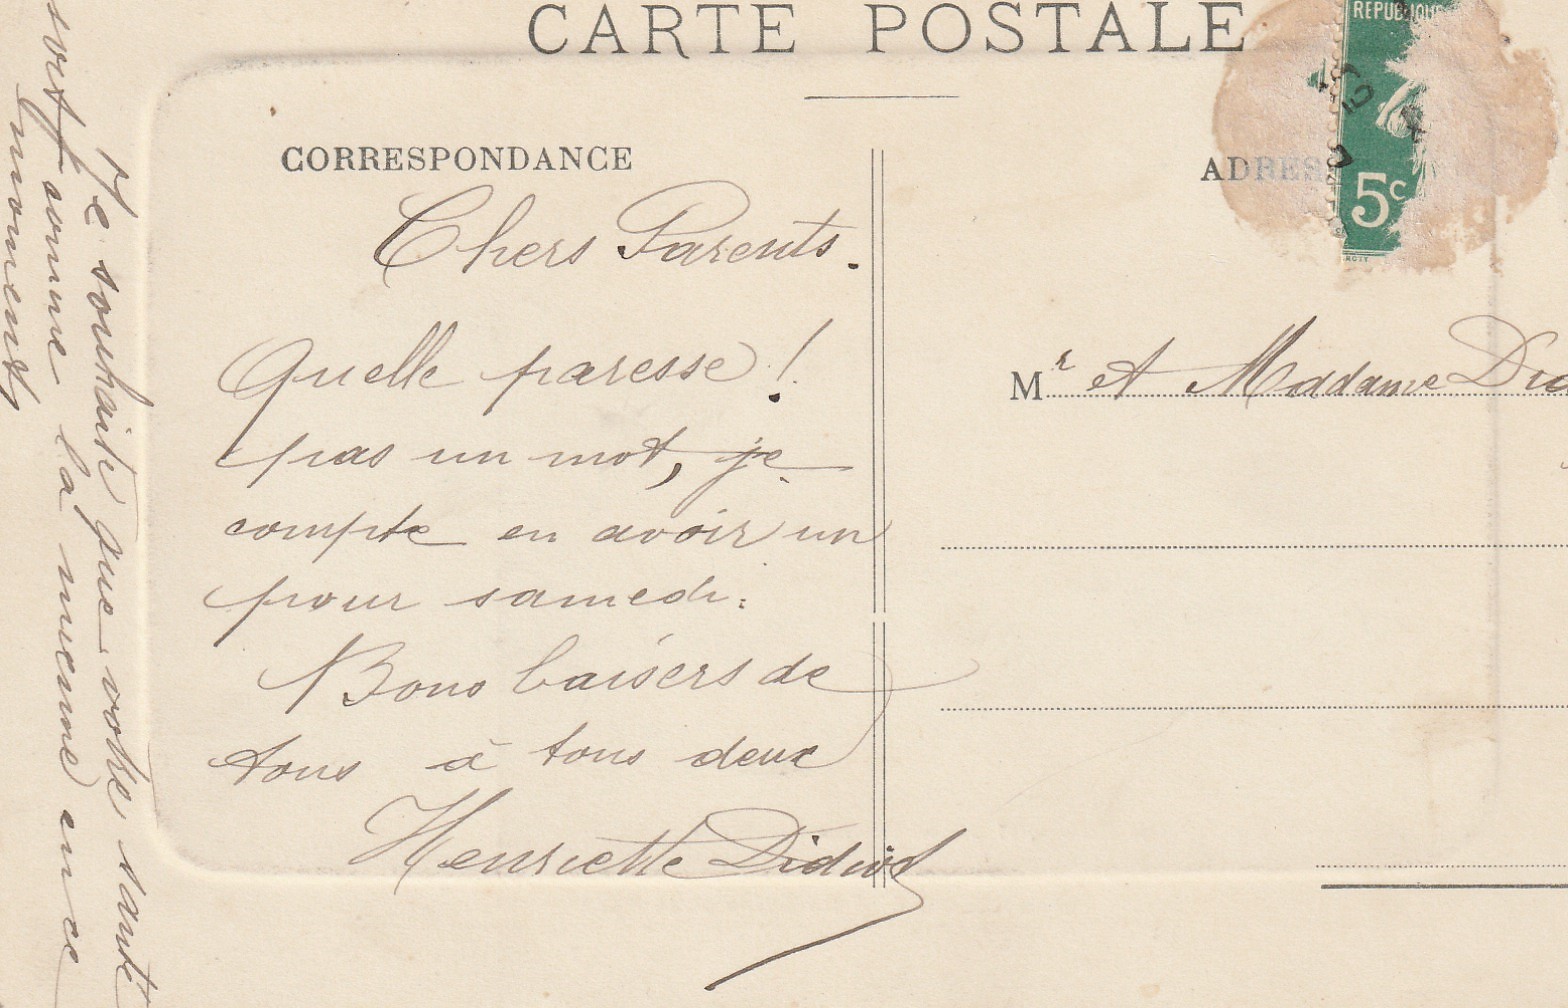 CARTE POSTALE
RÉPUBLIQUE
5c
CORRESPONDANCE
Chers Parents.
Quelle paresse !
pas un mot, je
compte en avoir un
pour samedi.
Bons baisers de
tous à tous deux
Henriette
Je souhaite que votre santé
soit comme la mienne en ce
moment
Mr et Madame